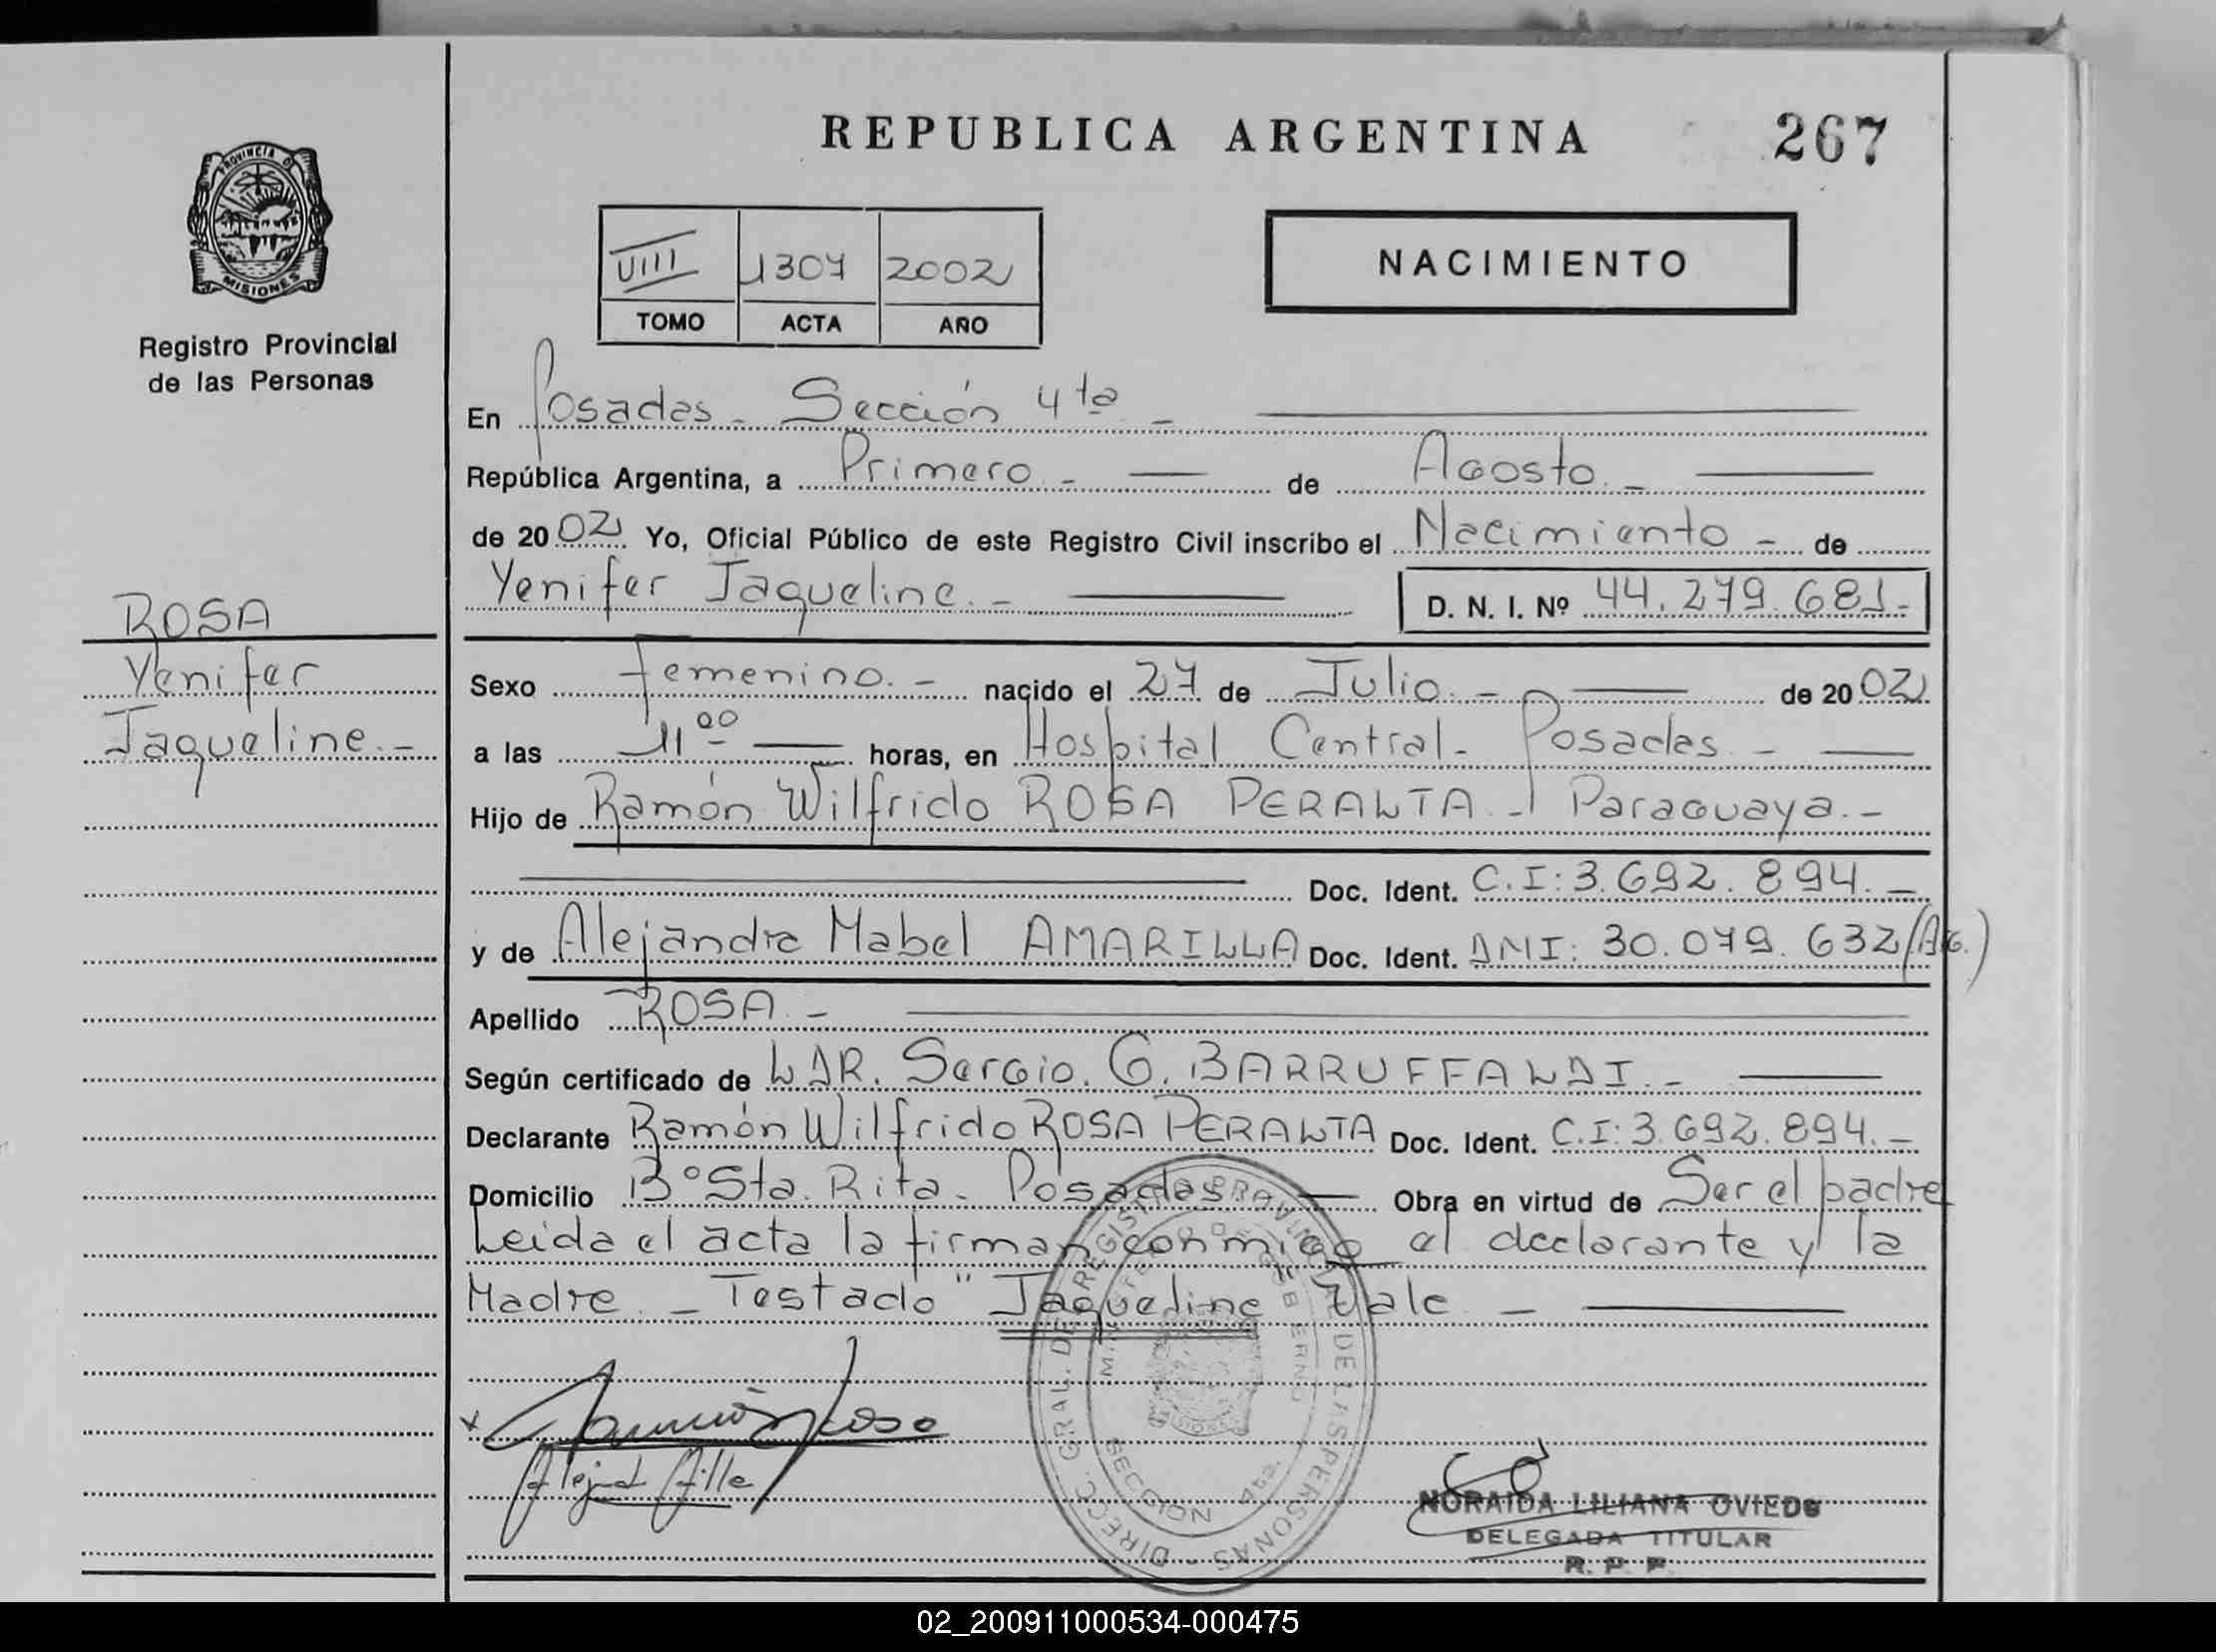 REPUBLICA ARGENTINA
267
PROVINCIA D
MISIONES
Registro Provincial
de las Personas
VIII 1307 2002
TOMO ACTA AÑO
NACIMIENTO
En Posadas - Sección 4ta -
República Argentina, a Primero - de Agosto -
de 2002 Yo, Oficial Público de este Registro Civil inscribo el Nacimiento - de
Yenifer Jaqueline. - D. N. I. Nº 44.279.681.-
ROSA
Yenifer
Jaqueline.-
Sexo femenino. - nacido el 27 de Julio. - de 2002
a las 11 00 horas, en Hospital Central - Posadas -
Hijo de Ramón Wilfrido ROSA PERALTA - Paraguaya. -
Doc. Ident. C.I: 3.692.894. -
y de Alejandra Mabel AMARILLA Doc. Ident. DNI: 30.079.632/(Ag.)
Apellido ROSA. -
Según certificado de LDR. Sergio. G. BARRUFFALDI. -
Declarante Ramón Wilfrido ROSA PERALTA Doc. Ident. C.I: 3.692.894. -
Domicilio Bº Sta. Rita - Posadas - Obra en virtud de Ser el padre
Leida el acta la firman conmigo el declarante y la
Madre. - Testado "Jaqueline" Vale -
DIRECC. GRAL. DE REGISTRO PROVINCIAL DE LAS PERSONAS -
SECCION 4ta.
NORAIDA LILIANA OVIEDO
DELEGADA TITULAR
R. P. P.
02_200911000534-000475